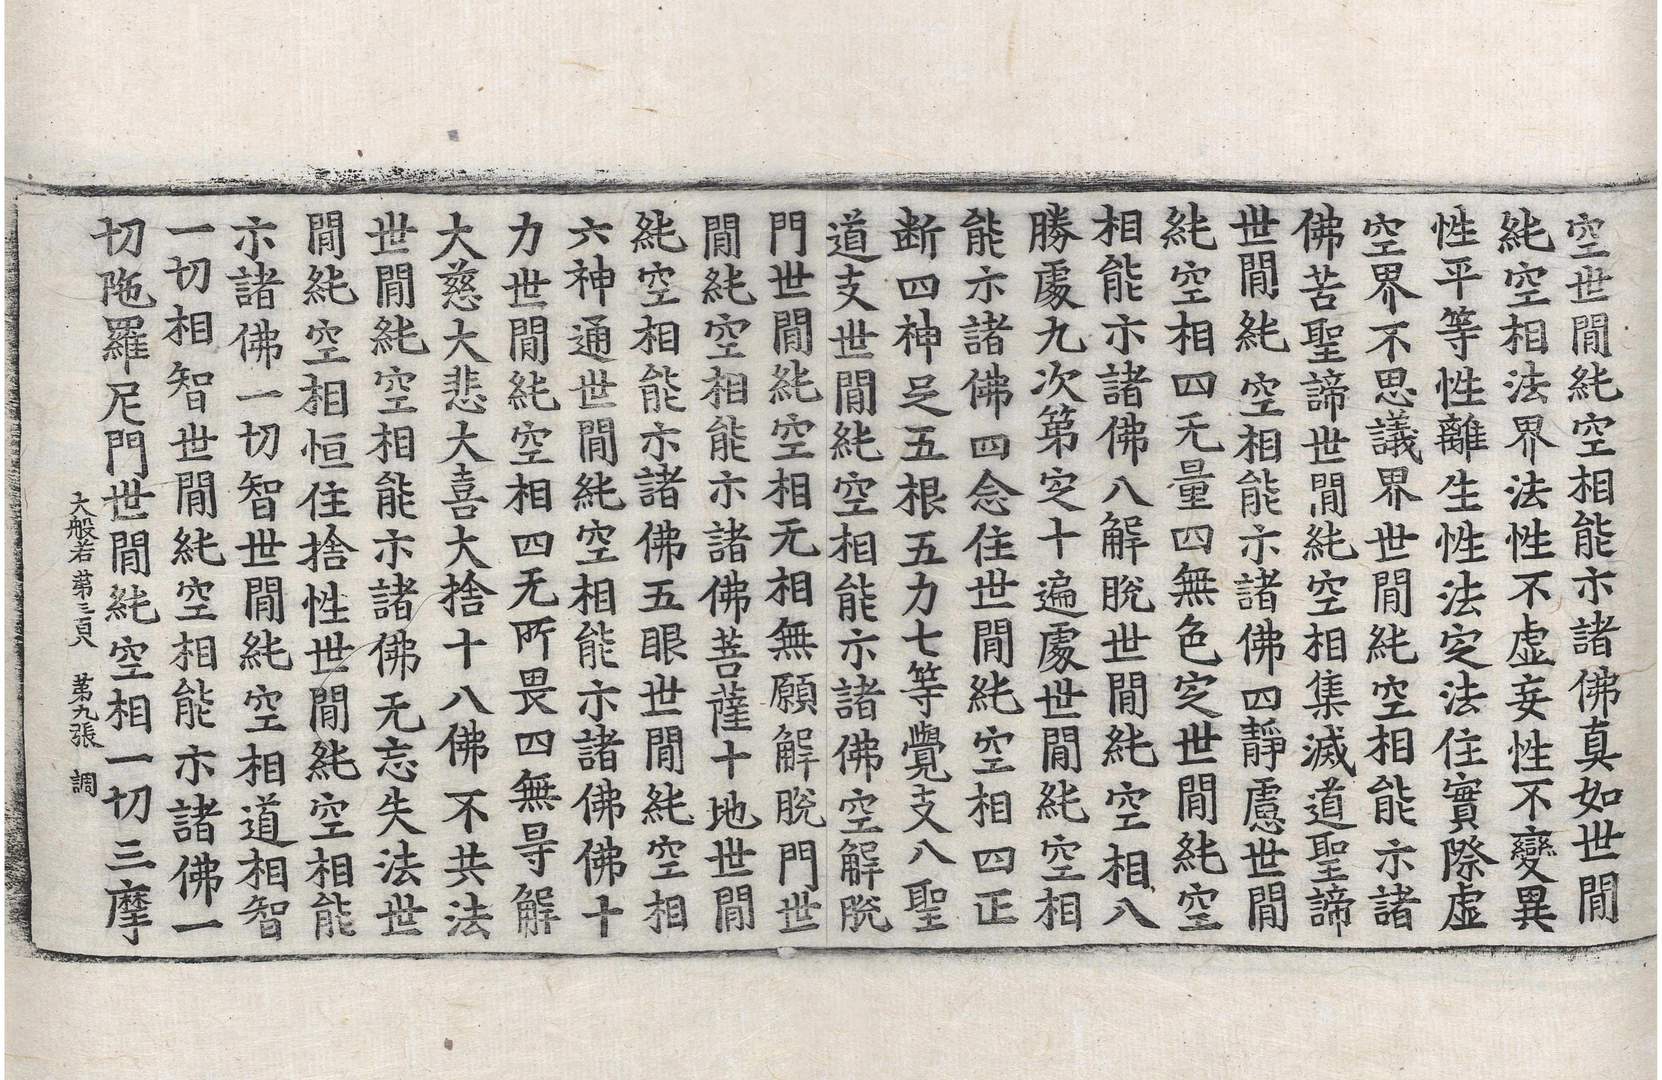 空世閒純空相能示諸佛真如世閒
純空相法界法性不虛妄性不變異
性平等性離生性法定法住實際虛
空界不思議界世閒純空相能示諸
佛苦聖諦世閒純空相集滅道聖諦
世閒純空相能示諸佛四靜慮世閒
純空相四无量四無色定世閒純空
相能示諸佛八解脫世閒純空相八
勝處九次第定十遍處世閒純空相
能示諸佛四念住世閒純空相四正
断四神足五根五力七等覺支八聖
道支世閒純空相能示諸佛空解脫
門世閒純空相无相無願解脫門世
閒純空相能示諸佛菩薩十地世閒
純空相能示諸佛五眼世閒純空相
六神通世閒純空相能示諸佛佛十
力世閒純空相四无所畏四無㝵解
大慈大悲大喜大捨十八佛不共法
世閒純空相能示諸佛无忘失法世
閒純空相恒住捨性世閒純空相能
示諸佛一切智世閒純空相道相智
一切相智世閒純空相能示諸佛一
切陁羅尼門世閒純空相一切三摩
大般若 第三百六 第九張 調